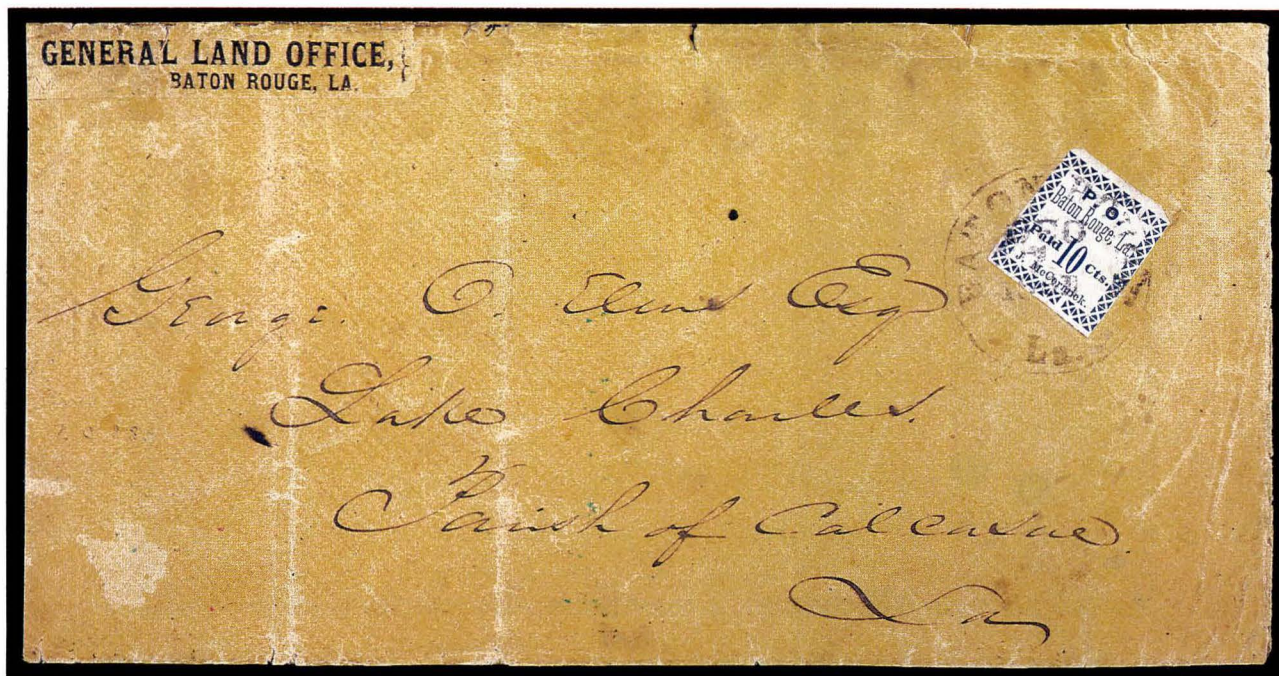 GENERAL LAND OFFICE,
BATON ROUGE, LA.
P. O.
Baton Rouge, La.
Paid 10 Cts.
J. McCormick.
BATON
La.
George. O. Esq
Lake Charles.
Parish of Calcasue.
La